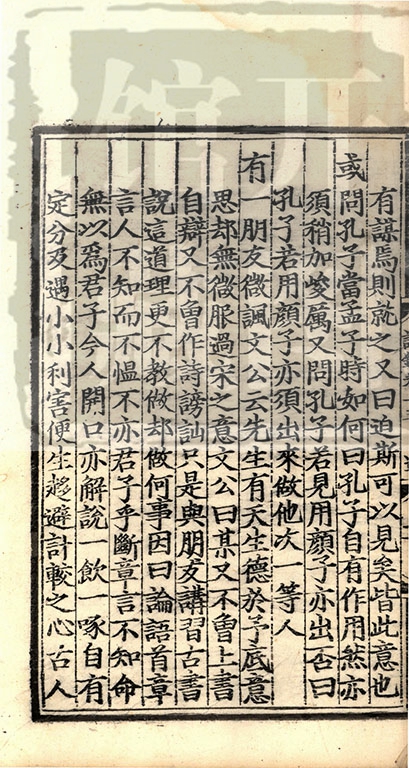 有謀焉則就之又曰迫斯可以見矣皆此意也
或問孔子當孟子時如何曰孔子自有作用然亦
須稍加峻厲又問孔子若見用顔子亦出否曰
孔子若用顔子亦須出來做他次一等人
有一朋友微諷文公云先生有天生德於予底意
思却無微服過宋之意文公曰某又不曾上書
自辯又不曾作詩謗訕只是與朋友講習古書
說這道理更不教做却做何事因曰論語首章
言人不知而不愠不亦君子乎斷章言不知命
無以爲君子今人開口亦解說一飲一啄自有
定分及遇小小利害便生趍避計較之心古人